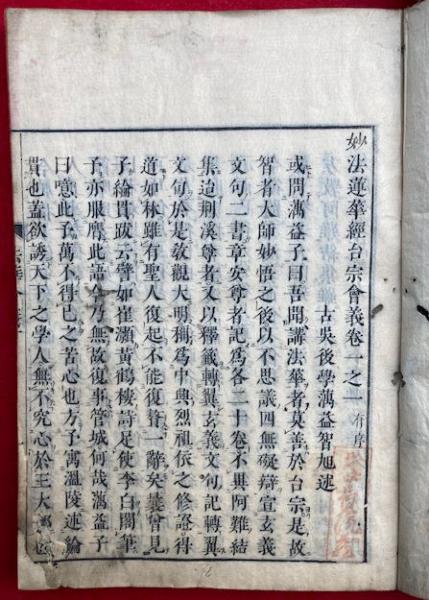 妙法蓮華經台宗會義卷一之一 有序
古吳後學蕅益智旭述
或問蕅益子曰吾聞講法華者莫善於台宗是故
智者大師妙悟之後以不思議四無礙辯宣玄義
文句二書章安尊者記為各二十卷不異阿難結
集迨荆溪尊者又以釋籤轉翼玄義文句記轉翼
文句於是敎觀大明稱為中興烈祖依之修證得
道如林雖有聖人復起不能復贅一辭矣曩曾見
子綸貫跋云譬如崔灝黃鶴樓詩足使李白閣筆
予亦服膺此語今乃無故復事管城何哉蕅益子
曰噫此予萬不得已之苦心也方予寓溫陵述綸
貫也蓋欲誘天下之學人無不究心於王大部也